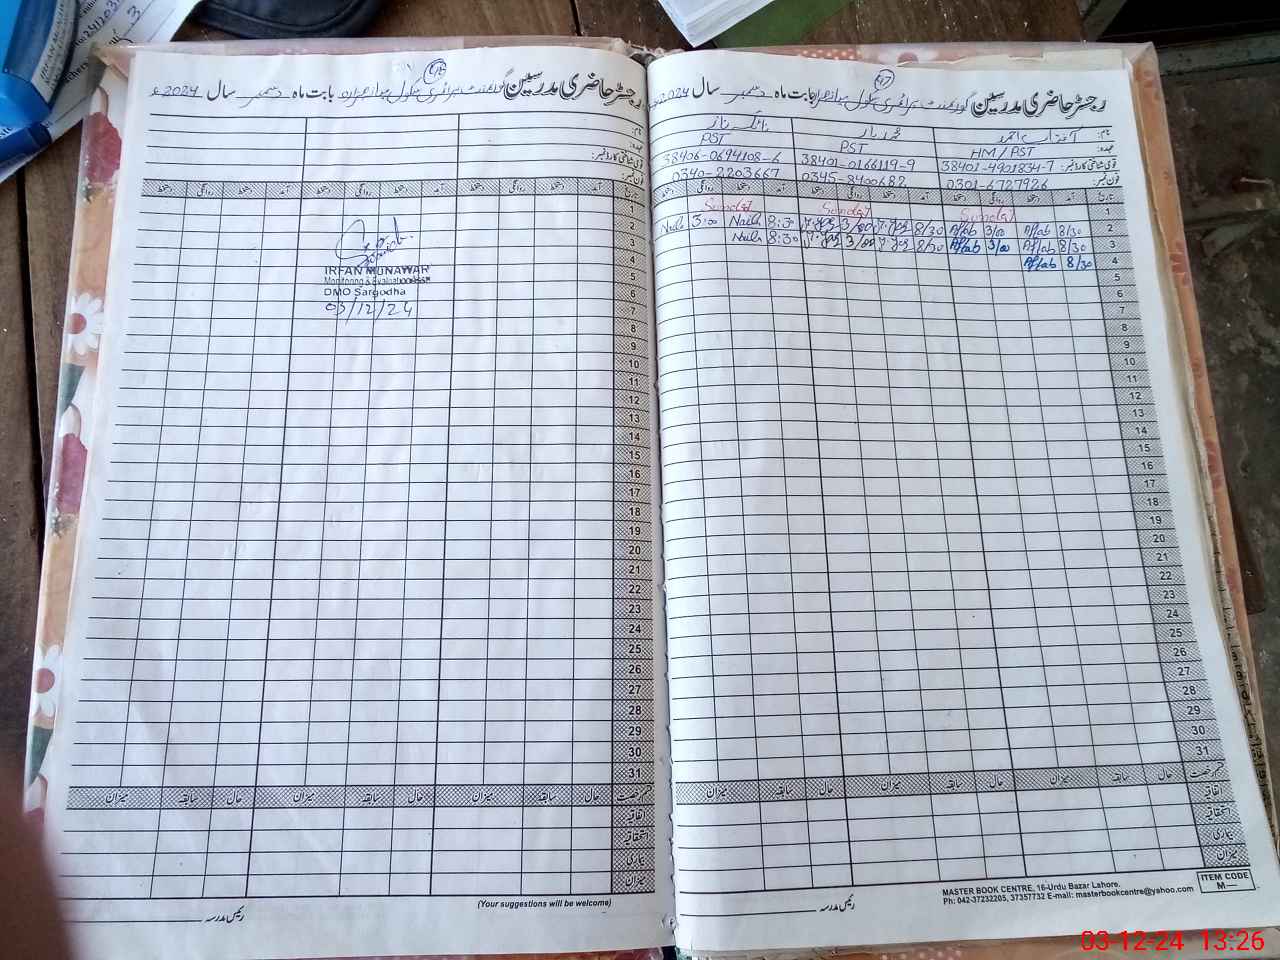 رجسٹر حاضری مدرسین گورنمنٹ پرائمری سکول بابت ماہ دسمبر سال 2024ء
47
نام:
عہدہ: HM/PST PST PST
قومی شناختی کارڈ نمبر: 38401-4901834-7 38401-0166119-9 38406-0694108-6
فون نمبر: 0301-6727926 0345-8400682 0340-2203667
تاریخ آمد دستخط روانگی دستخط آمد دستخط روانگی دستخط آمد دستخط روانگی دستخط
1 Sunday Sunday Sunday
2 8/30 Aftab 3/00 Aftab 8/30 3/00 8:30 Naila 3:00 Naila
3 8/30 Aftab 3/00 Aftab 8/30 3/00 8:30 Naila
4 8/30 Aftab
5
6
7
8
9
10
11
12
13
14
15
16
17
18
19
20
21
22
23
24
25
26
27
28
29
30
31
قسم رخصت حال سابقہ میزان حال سابقہ میزان حال سابقہ میزان
اتفاقیہ
استحقاقیہ
بیماری
میزان
ITEM CODE
M—
MASTER BOOK CENTRE, 16-Urdu Bazar Lahore.
Ph: 042-37232205, 37357732 E-mail: masterbookcentre@yahoo.com
رئیس مدرسہ
رجسٹر حاضری مدرسین گورنمنٹ پرائمری سکول بابت ماہ دسمبر سال 2024ء
نام:
عہدہ:
قومی شناختی کارڈ نمبر:
فون نمبر:
تاریخ آمد دستخط روانگی دستخط آمد دستخط روانگی دستخط آمد دستخط روانگی دستخط
1
2
3
4
5
6
7
8
9
10
11
12
13
14
15
16
17
18
19
20
21
22
23
24
25
26
27
28
29
30
31
IRFAN MUNAWAR
Monitoring & Evaluation
DMO Sargodha
03/12/24
قسم رخصت حال سابقہ میزان حال سابقہ میزان حال سابقہ میزان
اتفاقیہ
استحقاقیہ
بیماری
میزان
(Your suggestions will be welcome)
رئیس مدرسہ
03-12-24 13:26